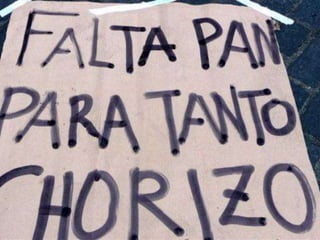 FALTA PAN
PARA TANTO
CHORIZO